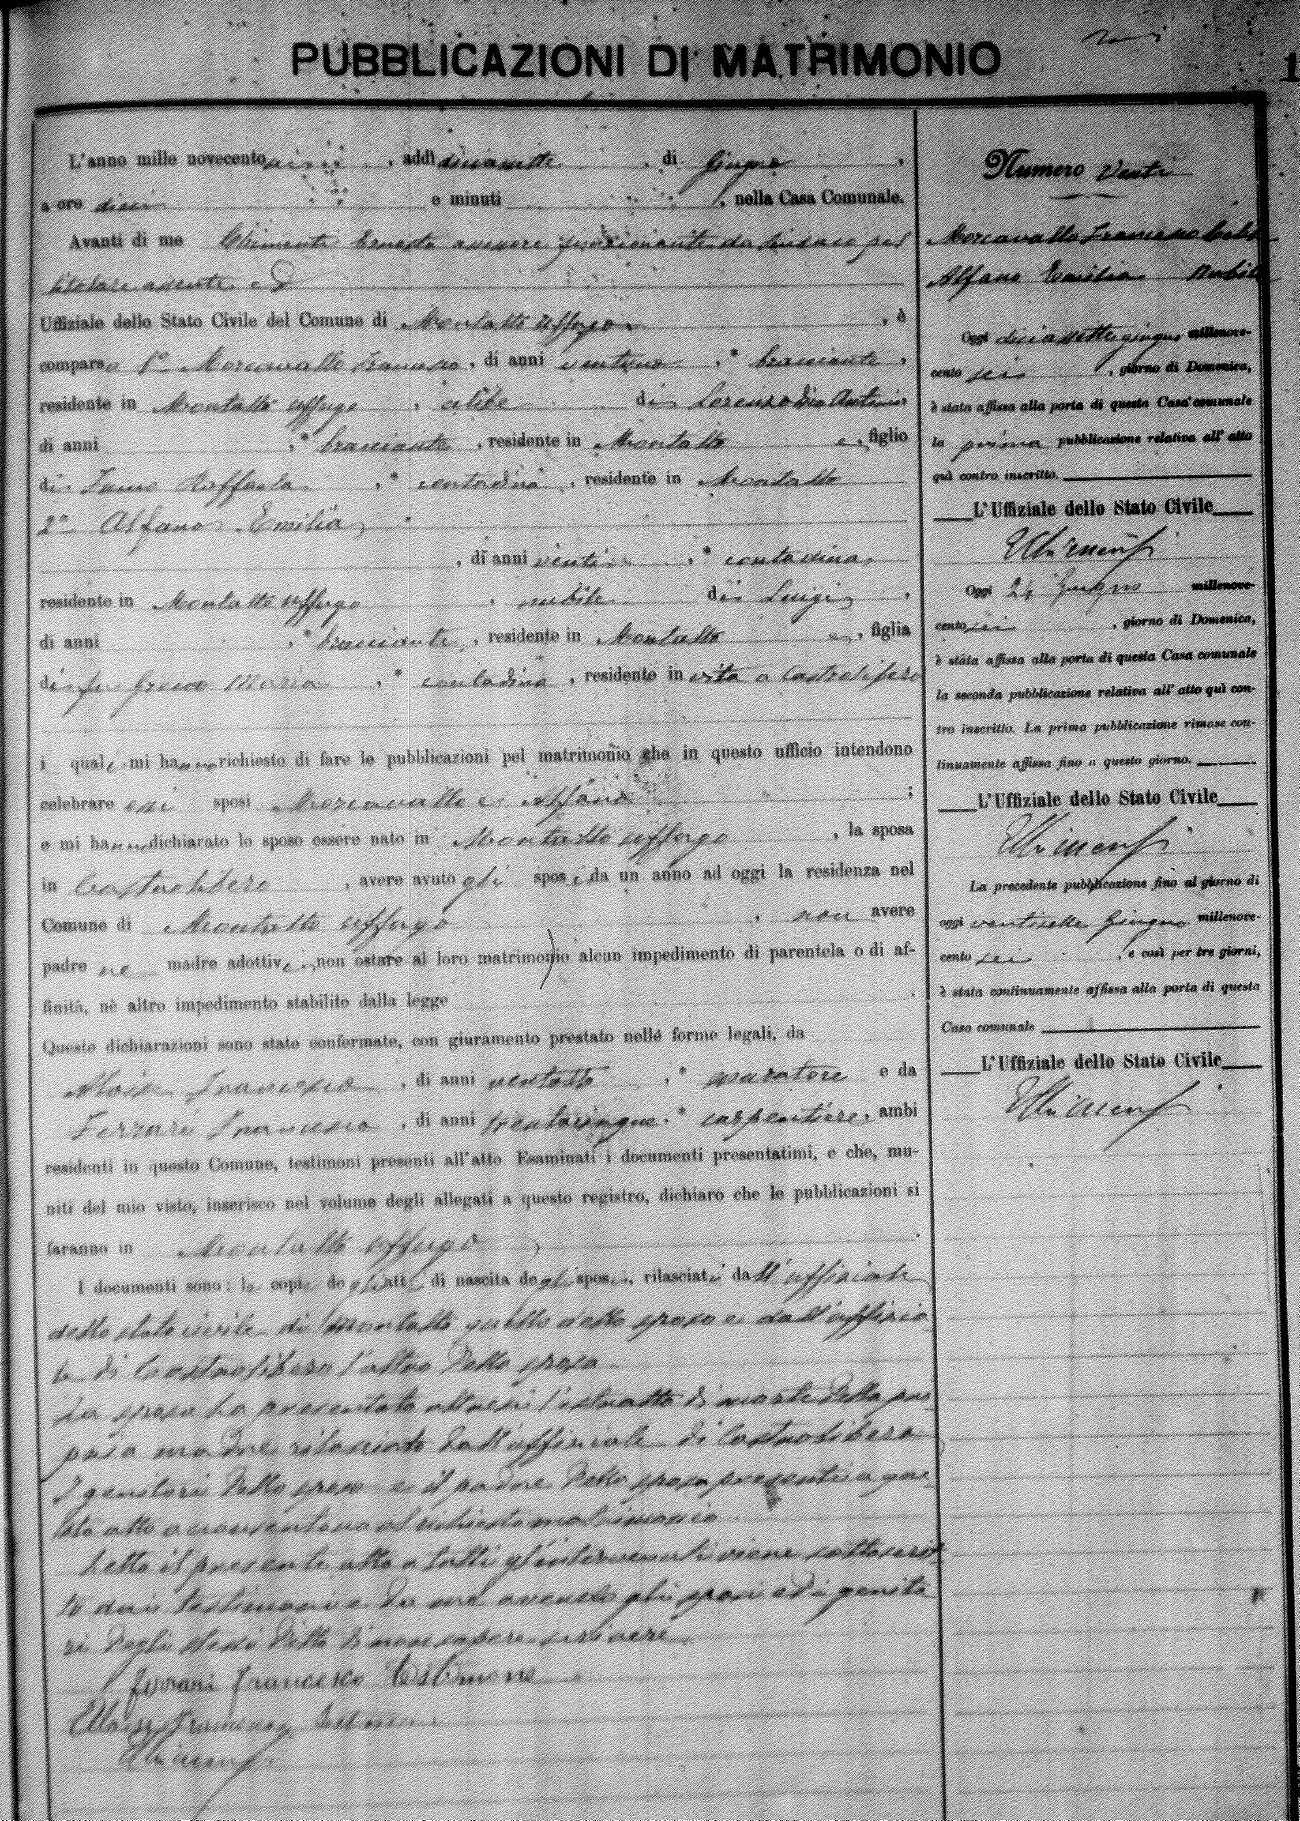 PUBBLICAZIONI DI MATRIMONIO
L'anno mille novecento sei, addì diciassette di Giugno,
a ore dieci e minuti , nella Casa Comunale.
Avanti di me Chimenti Ernesto assessore funzionante da sindaco pel
titolare assente e
Uffiziale dello Stato Civile del Comune di Montalto Uffugo, è
comparso 1° Morcavallo Francesco, di anni ventuno, bracciante,
residente in Montalto Uffugo, celibe di Lorenzo di Antonio
di anni , bracciante, residente in Montalto e, figlio
di Raffaela, contadina, residente in Montalto
2° Alfano Emilia
, di anni venti, contadina,
residente in Montalto Uffugo, nubile di Luigi,
di anni , bracciante, residente in Montalto e, figlia
di fu Greco Maria, contadina, residente in vita a Castrolibero
i quali mi hanno richiesto di fare le pubblicazioni pel matrimonio che in questo ufficio intendono
celebrare essi sposi Morcavallo e Alfano ;
e mi hanno dichiarato lo sposo essere nato in Montalto Uffugo, la sposa
in Castrolibero, avere avuto gli sposi da un anno ad oggi la residenza nel
Comune di Montalto Uffugo, non avere
padre ne madre adottivi, non ostare al loro matrimonio alcun impedimento di parentela o di af-
finità, nè altro impedimento stabilito dalla legge .
Queste dichiarazioni sono state confermate, con giuramento prestato nelle forme legali, da
Aloise Francesco, di anni ventotto, muratore e da
Ferrari Francesco, di anni trentacinque, carpentiere, ambi
residenti in questo Comune, testimoni presenti all'atto Esaminati i documenti presentatimi, e che, mu-
niti del mio visto, inserisco nel volume degli allegati a questo registro, dichiaro che le pubblicazioni si
faranno in Montalto Uffugo.
I documenti sono: le copie degli atti di nascita degli sposi, rilasciati dall'uffiziale
dello stato civile di Montalto quello dello sposo e dall'uffizia
le di Castrolibero l'altro della sposa
La sposa ha presentato altresì l'estratto di morte della pro
pria madre rilasciato dall'uffiziale di Castrolibero
I genitori dello sposo e il padre della sposa presenti a que
sto atto acconsentono al richiesto matrimonio
Letto il presente atto a tutti gl'intervenuti viene sottoscrit
to dai testimoni e da me avendo gli sposi ed i genito
ri degli stessi detto di non sapere scrivere
Ferrari Francesco testimone
Aloise Francesco testimone
EChimenti
Numero Venti
Morcavallo Francesco Celibe
Alfano Emilia Nubile
Oggi diciassette giugno millenove-
cento sei, giorno di Domenica,
è stata affissa alla porta di questa Casa comunale
la prima pubblicazione relativa all'atto
quì contro inscritto.
L'Uffiziale dello Stato Civile
EChimenti
Oggi 24 Giugno millenove-
cento sei, giorno di Domenica,
è stata affissa alla porta di questa Casa comunale
la seconda pubblicazione relativa all'atto quì con-
tro inscritto. La prima pubblicazione rimase con-
tinuamente affissa fino a questo giorno.
L'Uffiziale dello Stato Civile
EChimenti
La precedente pubblicazione fino al giorno di
oggi ventisette Giugno millenove-
cento sei, e così per tre giorni,
è stata continuamente affissa alla porta di questa
Casa comunale
L'Uffiziale dello Stato Civile
EChimenti